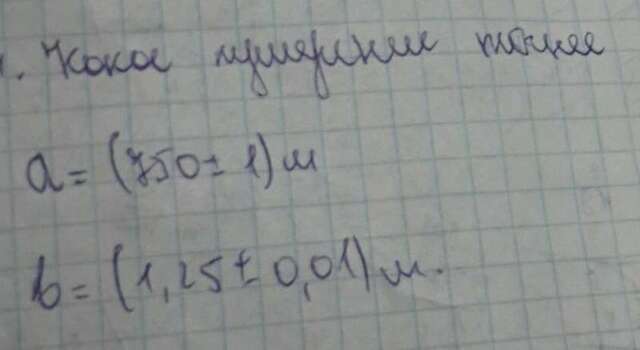 1. Какое измерение точнее
a = (750 ± 1) м
b = (1,25 ± 0,01) м.